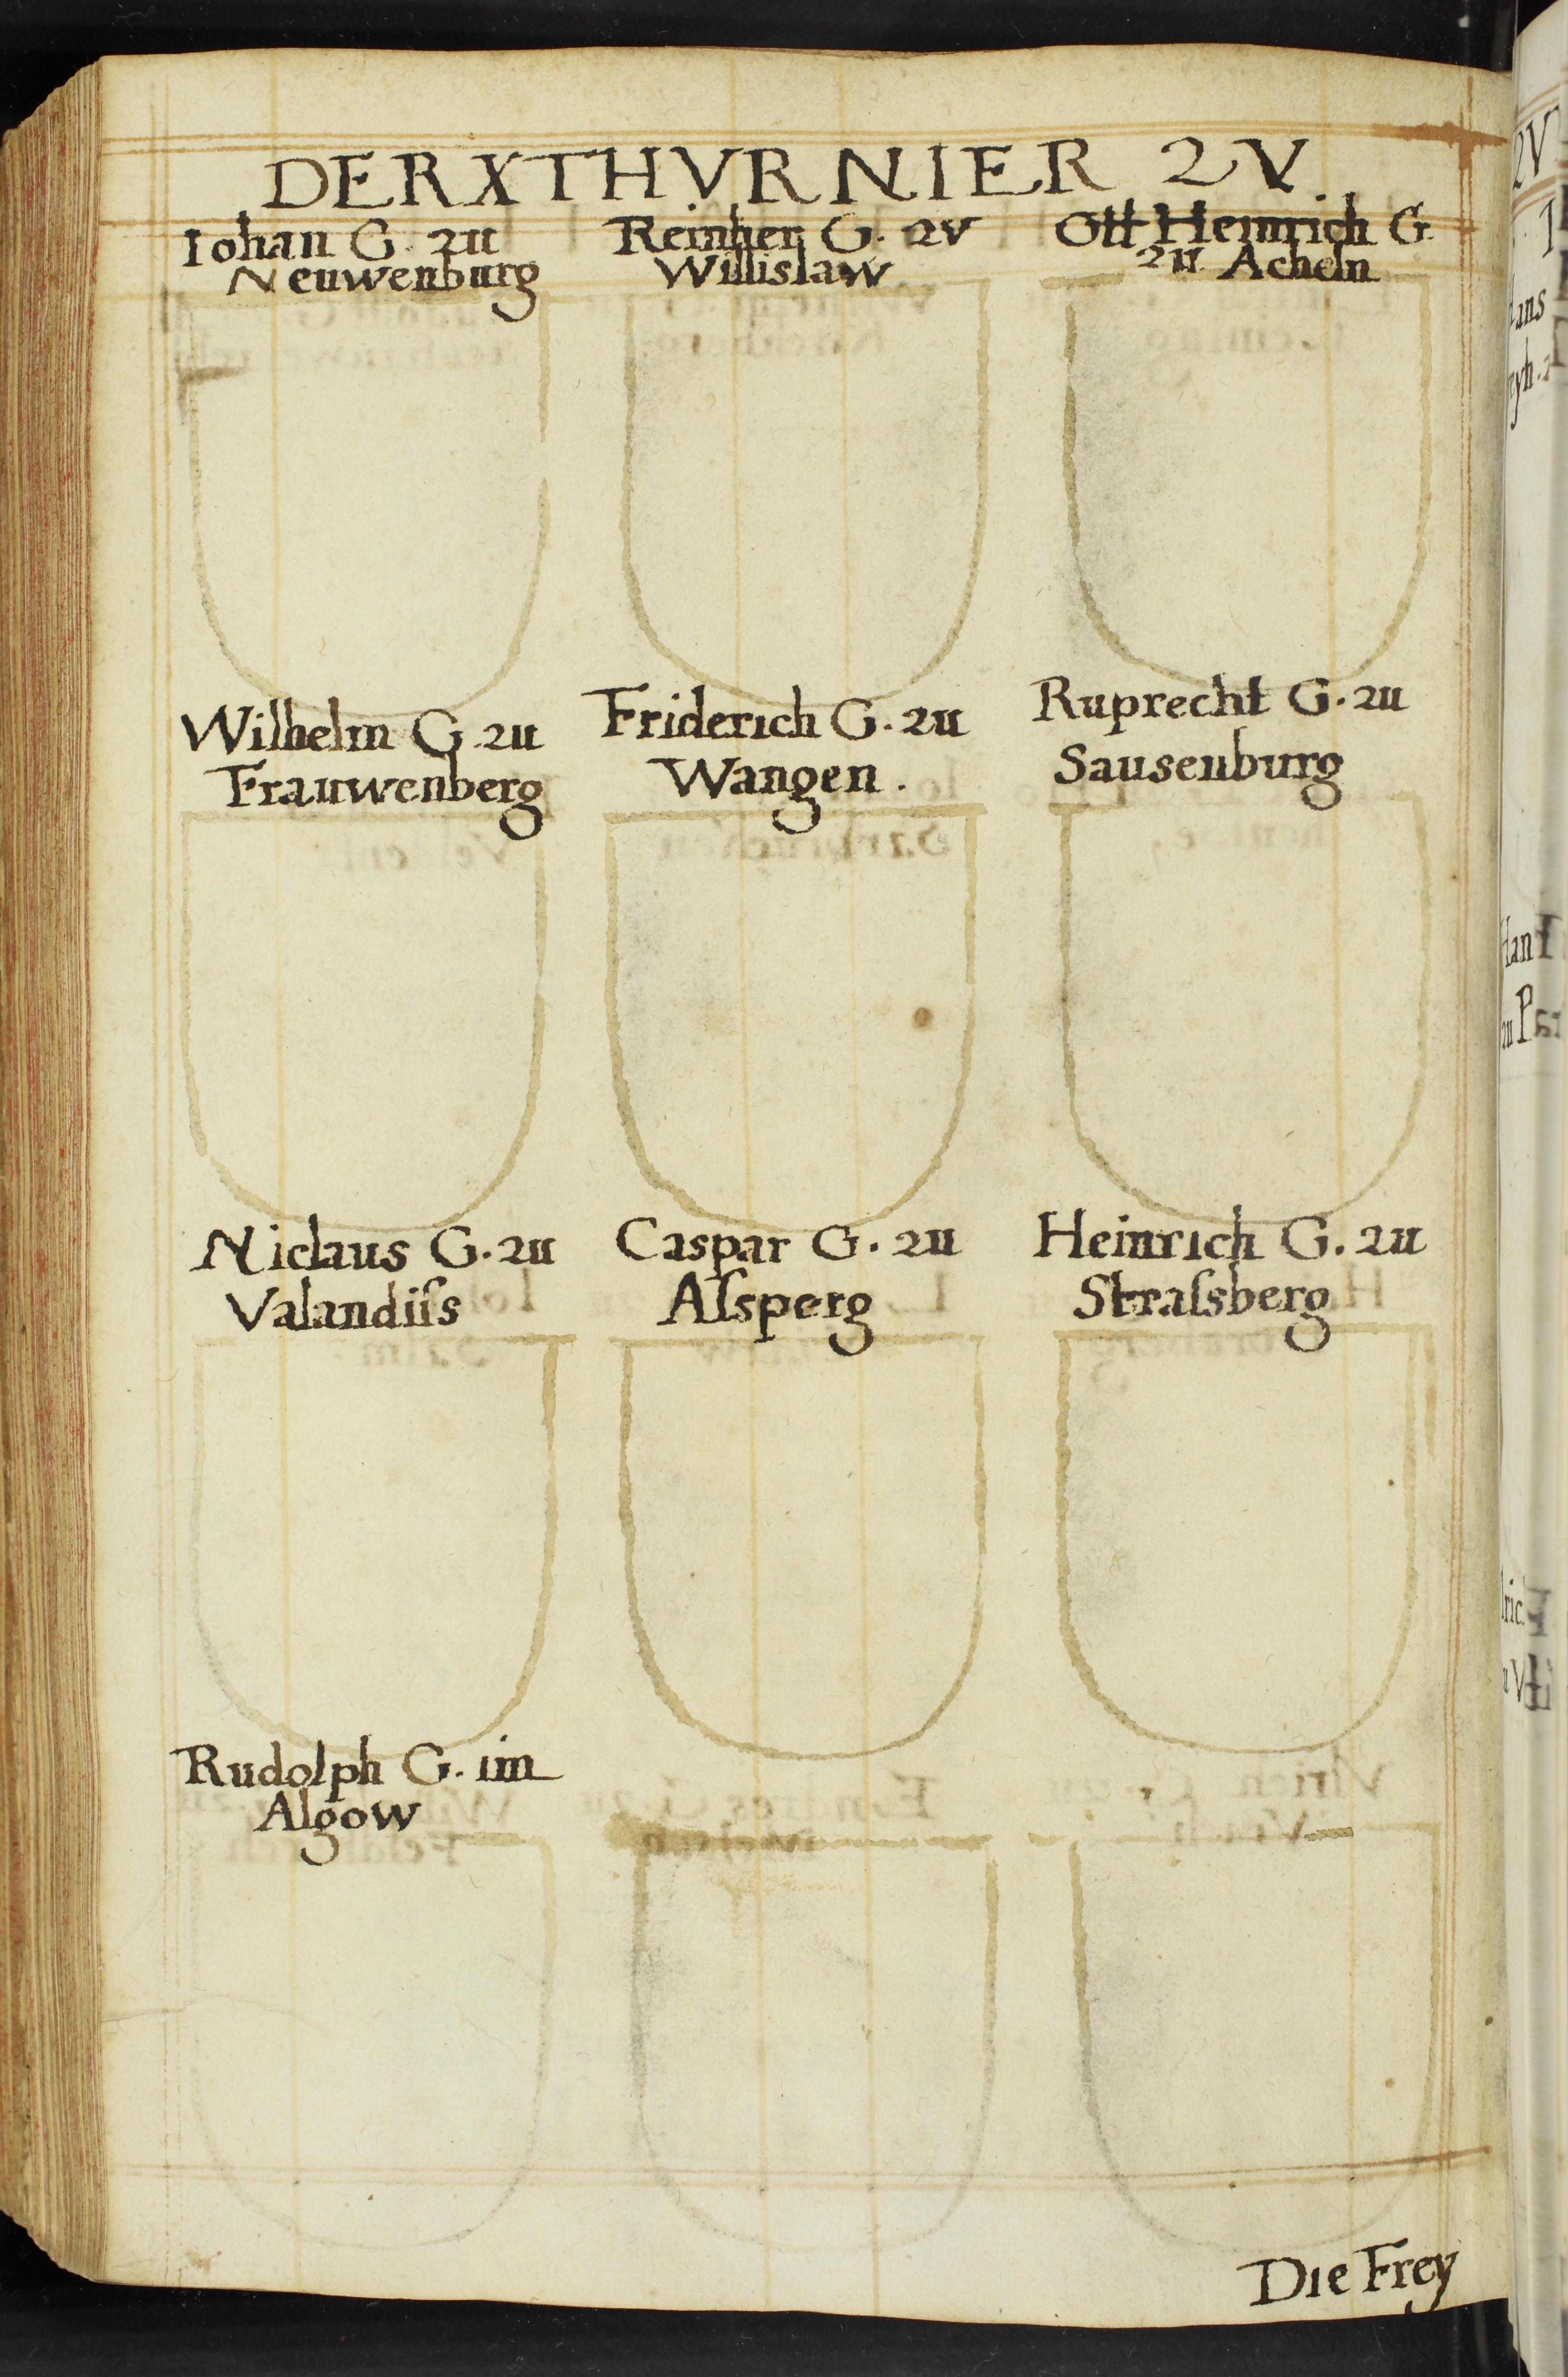 DER X THVRNIER ZV
Iohan G. zu
Neuwenburg
Reinher G. zv
Willislaw
Ott Heinrich G
zu Acheln
Wilhelm G. zu
Frauwenberg
Friderich G. zu
Wangen.
Ruprecht G. zu
Sausenburg
Niclaus G. zu
Valandiſs
Caspar G. zu
Aſsperg
Heinrich G. zu
Straſsberg
Rudolph G. im
Algow
Die Frey